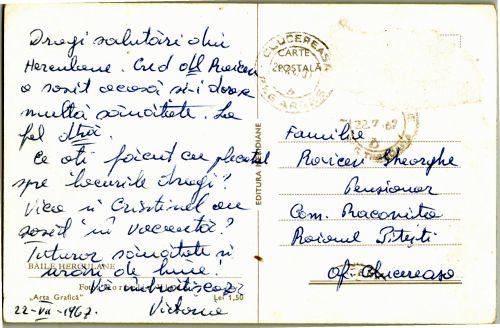 Dragi salutări din
Herculane. Cred
a sosit acasă și-i doresc
multă sănătate. La
fel
Ce ați făcut cu plecatul
spre locurile dragi?
Vica și Cristinel au
sosit în vacanță?
Tuturor sănătate și
urări de bine!
Vă îmbrățișează
22-VII-1967.
BĂILE HERCULANE
"Arta Grafică"
Lei 1,50
EDITURA MERIDIANE
CLUCEREASA
CARTE
POSTALĂ
22.7.67
Familiei
Gheorghe
Pensionar
Com. Racovița
Raionul Pitești
Of. Clucereasa